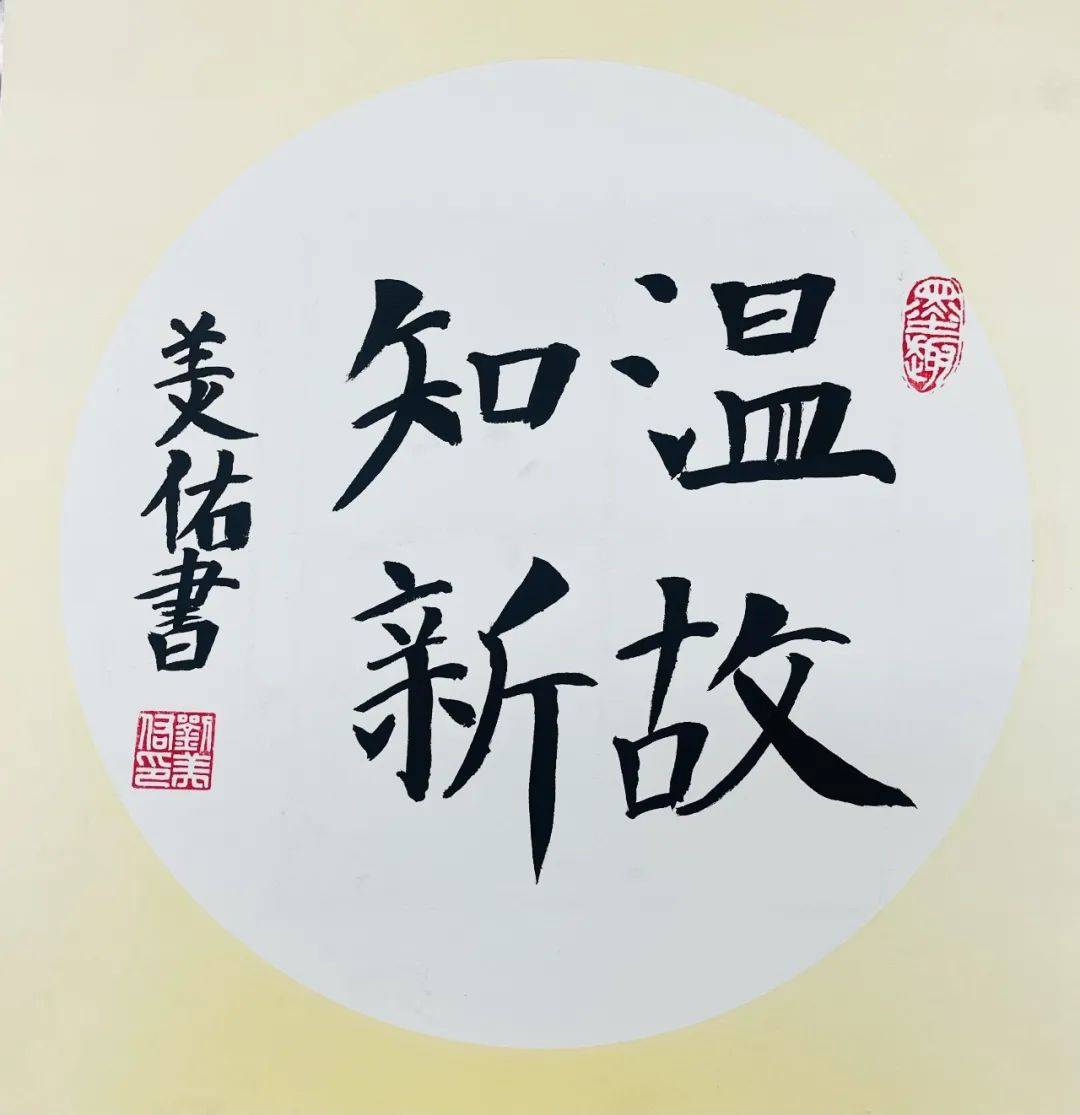 温故
知新
美佑書
墨趣
劉美佑印